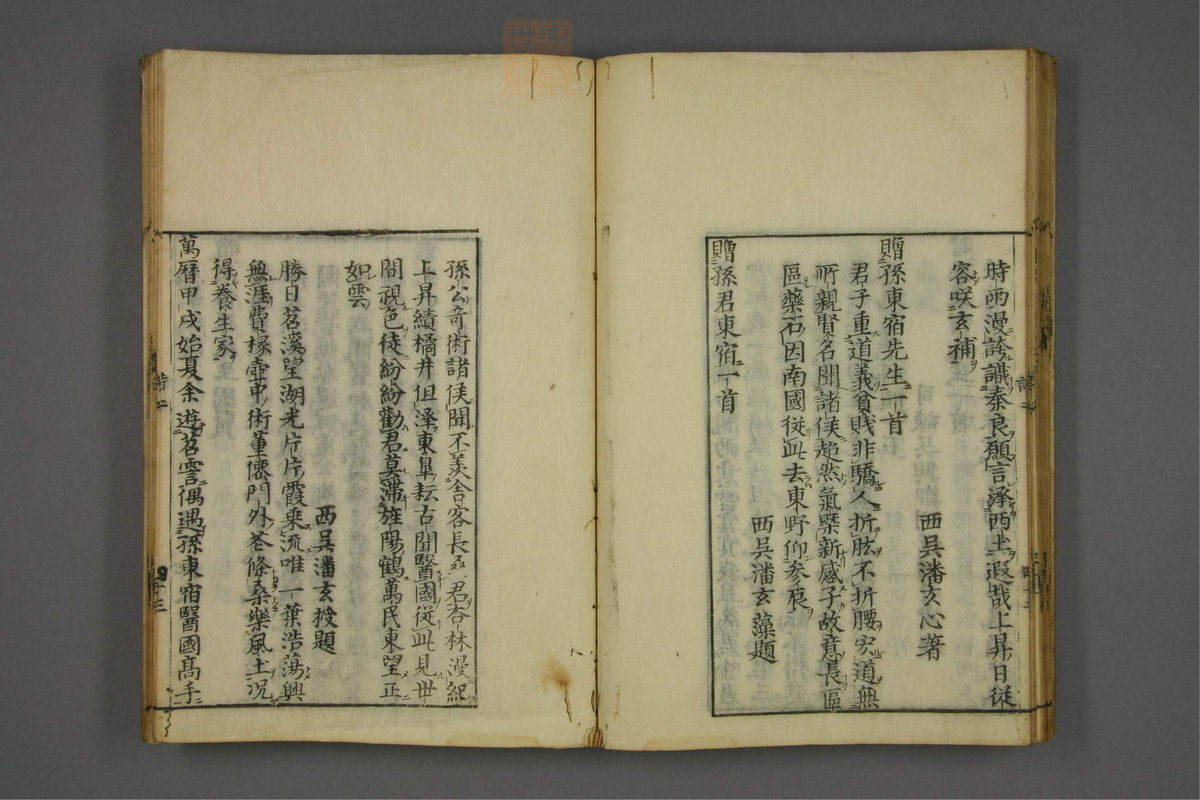 時両漫誇識秦良願言澤西土遐哉上昇日從
容咲玄補
西吳潘玄心著
贈孫東宿先生一首
君子重道義貧賤非驕人折肱不折腰究道無
所親賢名聞諸侯超然氣槩新感子故意長區
區藥石因南國從此去東野仰參辰
西吳潘玄藻題
贈孫君東宿一首
孫公奇術諸侯聞不羨舍客長桑君杏林漫紀
上昇績橘井但澤東皐耘古聞醫國從此見世
間視色徒紛紛勸君莫滯旌陽鶴萬民東望正
如雲
西吳潘玄授題
勝日苕溪望湖光片片霞乘流唯一葉浩蕩興
無涯費椽壺中術董僊門外花條桑樂風土况
得養生家
萬曆甲戌始夏余遊苕霅偶遇孫東宿醫國高手